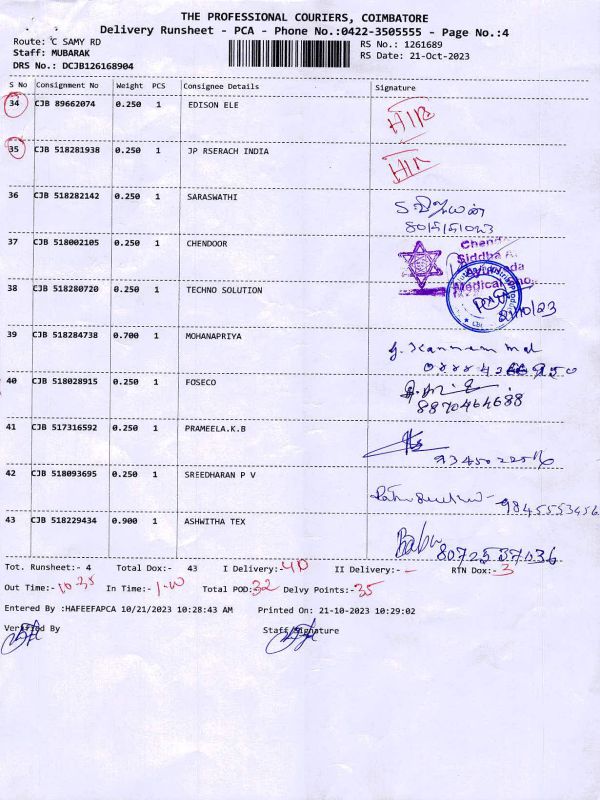 THE PROFESSIONAL COURIERS, COIMBATORE
Delivery Runsheet - PCA - Phone No.:0422-3505555 - Page No.:4
Route: C SAMY RD RS No.: 1261689
Staff: MUBARAK RS Date: 21-Oct-2023
DRS No.: DCJB126168904
S No Consignment No Weight PCS Consignee Details Signature
34 CJB 89662074 0.250 1 EDISON ELE
35 CJB 518281938 0.250 1 JP RSERACH INDIA
36 CJB 518282142 0.250 1 SARASWATHI
37 CJB 518002105 0.250 1 CHENDOOR
Siddha
Medical
38 CJB 518280720 0.250 1 TECHNO SOLUTION
21/10/23
39 CJB 518284738 0.700 1 MOHANAPRIYA
40 CJB 518028915 0.250 1 FOSECO
8870464688
41 CJB 517316592 0.250 1 PRAMEELA.K.B
42 CJB 518093695 0.250 1 SREEDHARAN P V
9845553456
43 CJB 518229434 0.900 1 ASHWITHA TEX
Babu 8072537036
Tot. Runsheet:- 4 Total Dox:- 43 I Delivery:- 40 II Delivery:- - RTN Dox:- 3
Out Time:- 10.35 In Time:- 1-00 Total POD: 32 Delvy Points:- 35
Entered By :HAFEEFAPCA 10/21/2023 10:28:43 AM Printed On: 21-10-2023 10:29:02
Verified By Staff Signature